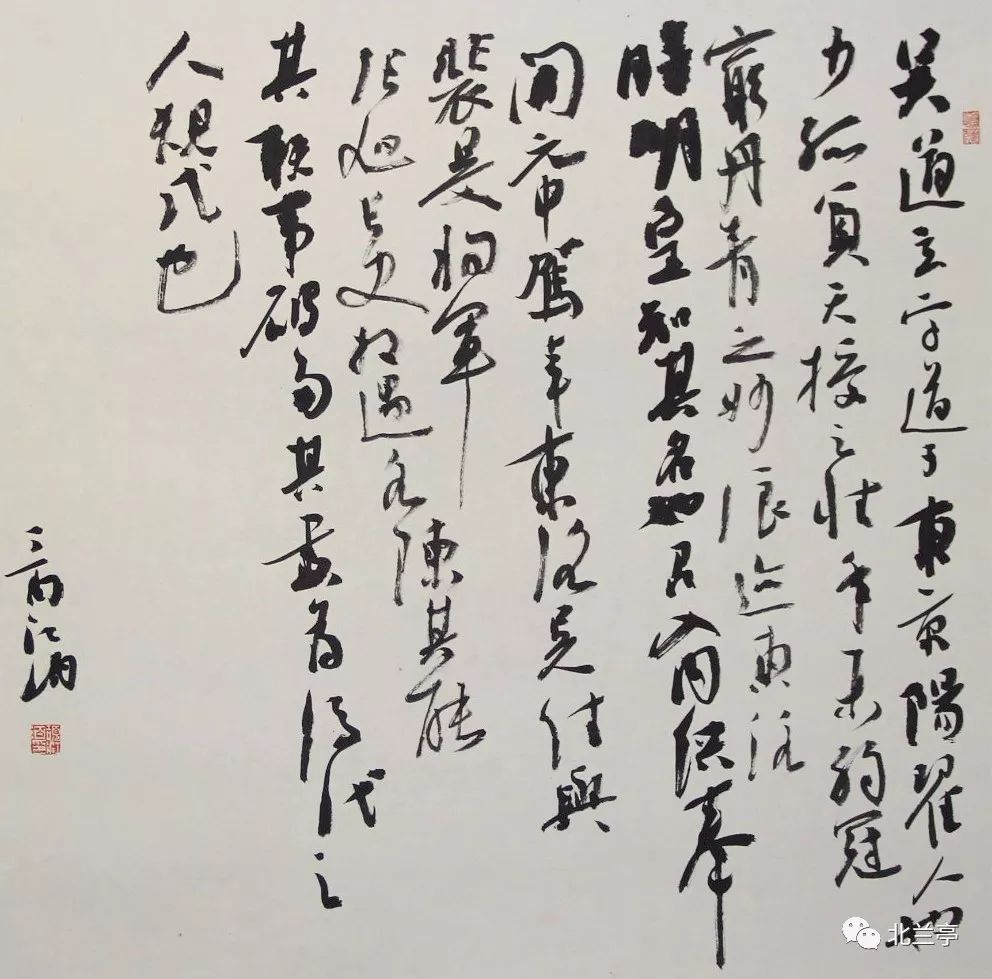 吴道玄字道子東京陽翟人也
少孤貧天授之性年未弱冠
窮丹青之妙浪迹東洛
時明皇知其名召入内供奉
開元中駕幸東洛吴生與
裴旻将軍
張旭長史相遇各陳其能
其
事
為後代之
人規式也
北兰亭